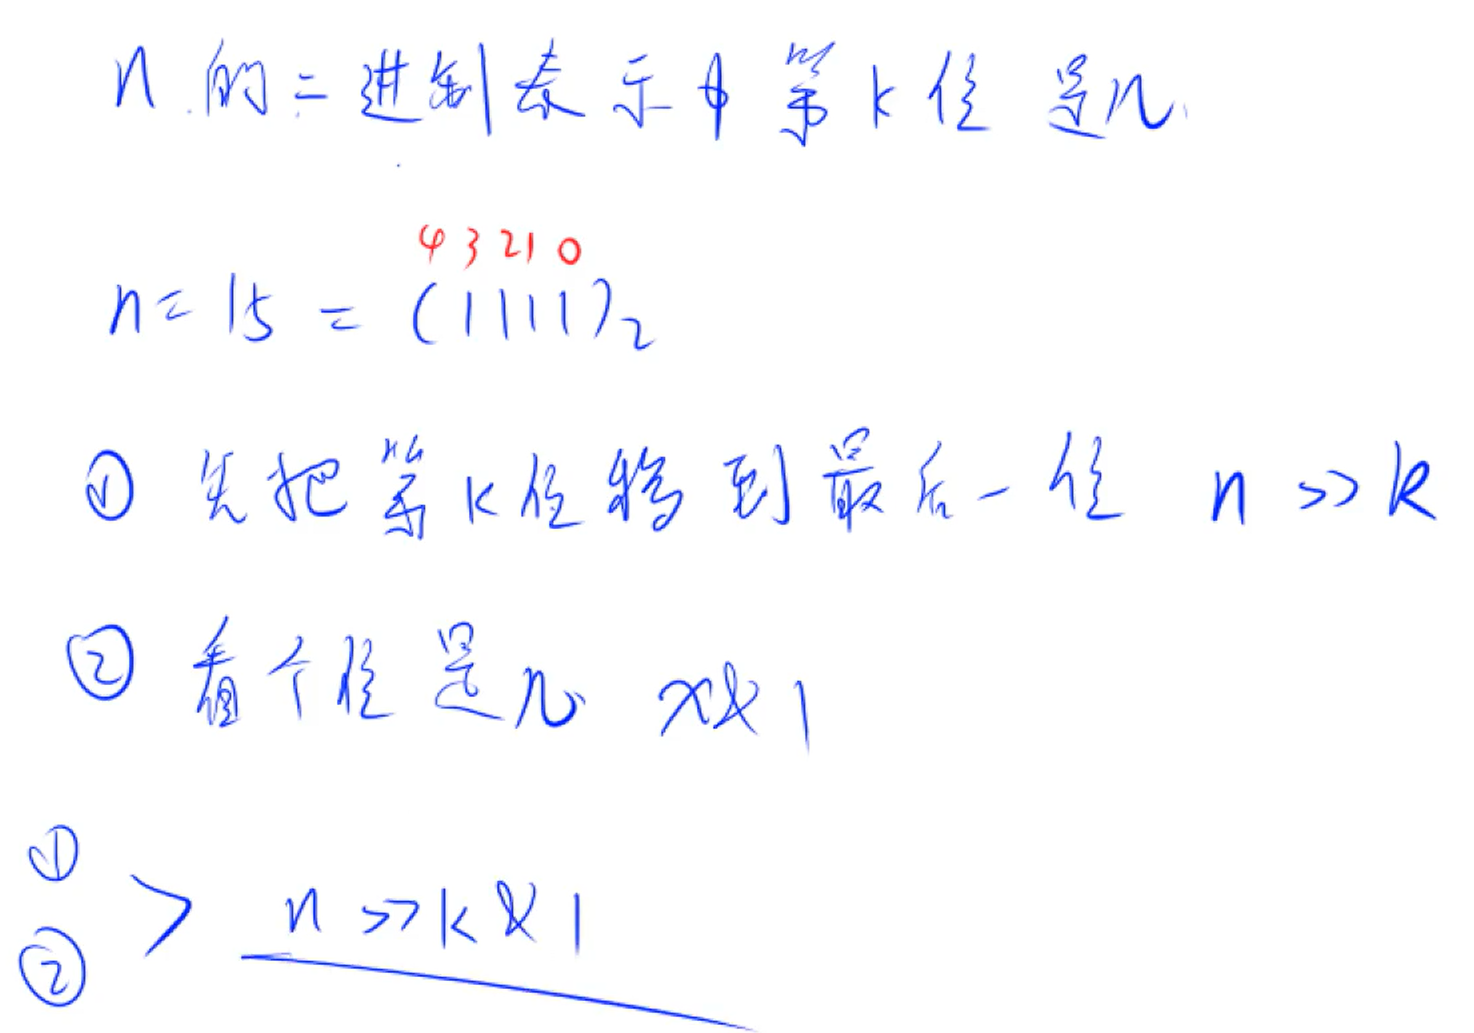 n 的二进制表示中第k位是几
4 3 2 1 0
n = 15 = (1111)2
① 先把第k位移到最后一位 n >> k
② 看个位是几 x&1
①
② > n >> k & 1